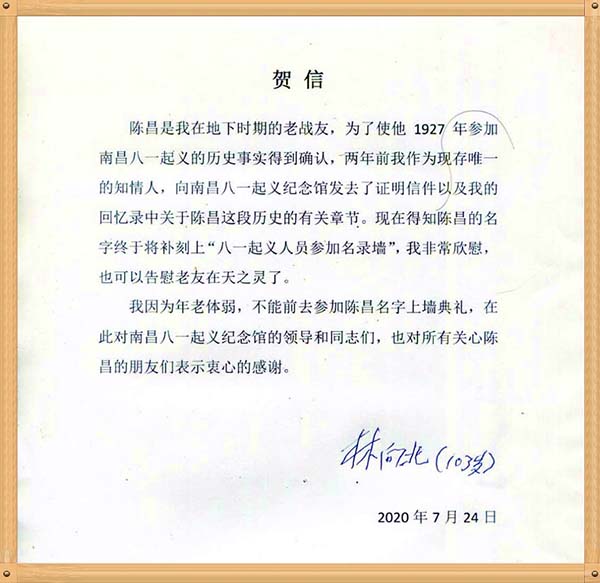 贺 信
陈昌是我在地下时期的老战友，为了使他 1927 年参加
南昌八一起义的历史事实得到确认，两年前我作为现存唯一
的知情人，向南昌八一起义纪念馆发去了证明信件以及我的
回忆录中关于陈昌这段历史的有关章节。现在得知陈昌的名
字终于将补刻上“八一起义人员参加名录墙”，我非常欣慰，
也可以告慰老友在天之灵了。
我因为年老体弱，不能前去参加陈昌名字上墙典礼，在
此对南昌八一起义纪念馆的领导和同志们，也对所有关心陈
昌的朋友们表示衷心的感谢。
林向北(103岁)
2020 年 7 月 24 日